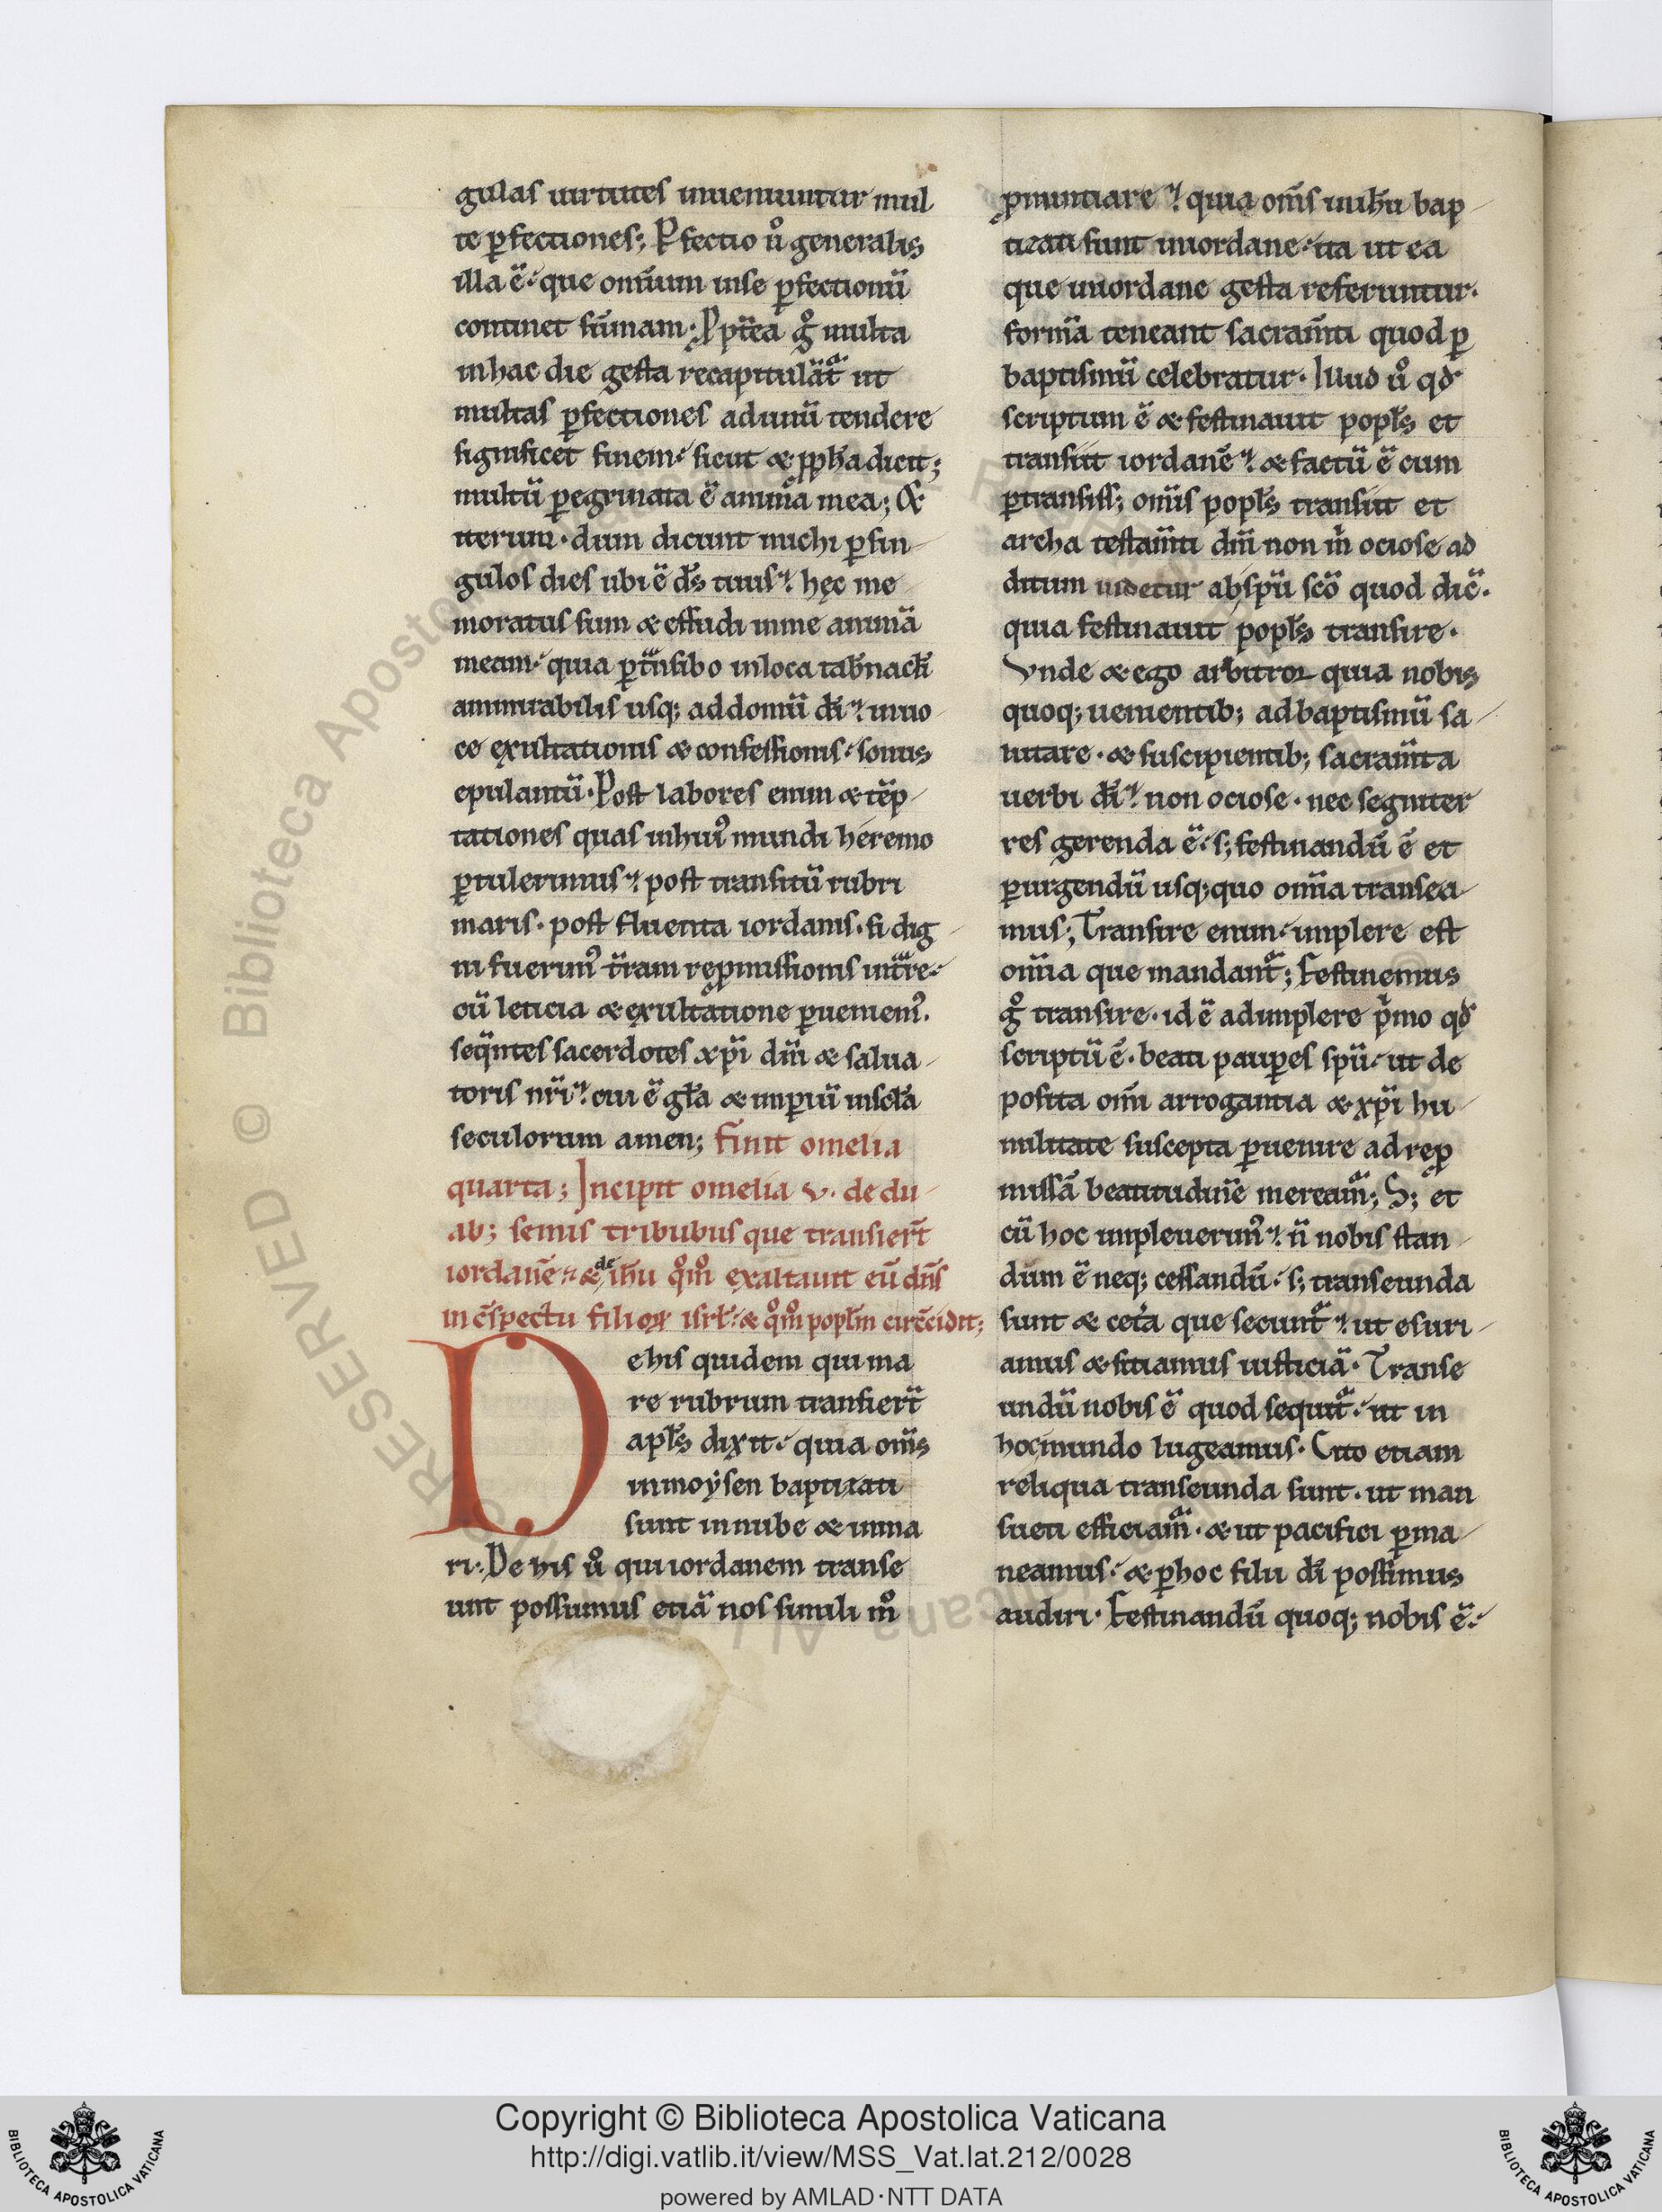 gulas uirtutes inueniuntur mul
te ꝑfectiones; Ꝑfectio uͦ generalis
illa ē. que omīum inse ꝑfectionū
continet sūmam. Ꝓptea gͦ multa
inhac die gesta recapitulāt ut
multas ꝑfectiones adunū tendere
significet finem. sicut & ꝓph̄a dicit;
multū ꝑegrinata ē anima mea; Et
iterum. dum dicunt michi ꝑsin
gulos dies ubi ē ds̄ tuus. hęc me
moratus sum & effudi inme animā
meam. quia ꝑtͣnsibo inloca tab̄nacłi
ammirabilis usq; addomū dī. inuo
ce exultationis & confessionis. sonus
epulantiū. Post labores enim & tēp
tationes quas inhui᾿ mundi heremo
ꝑtulerimus. post transitū rubri
maris. post fluenta iordanis. si dig
ni fuerim᾿ t̄ram reꝓmissionis intͣre.
cū leticia & exultatione ꝑueniem᾿.
seq̄ntes sacerdotes xp̄i dn̄i & salua
toris nr̄i. cui ē gła & imꝑiū inscła
seculorum amen; Finit omelia
quarta; Incipit omelia v. de du
ab; semis tribubus que transiert̄
iordanē. & de ih̄u qͦmͦ exaltauit eū dn̄s
in c̄spectu filioꝝ isrł. & qͦmͦ popłm circ̄cidit;
Dehis quidem qui ma
re rubrum transiert̄
apłs dixit. quia om̄s
inmoẏsen baptizati
sunt innube & inma
ri. De his uͦ qui iordanem transe
unt possumus etiā nos simili mͦ
ꝓnuntiare. quia om̄s inih̄u bap
tizati sunt iniordane. ita ut ea
que iniordane gesta referuntur.
formā teneant sacram̄ti quod ꝑ
baptismū celebratur. Illud uͦ qd̄
scriptum ē & festinauit popłs et
transiit iordanē. & factū ē cum
ꝑtransiss; omīs popłs transiit et
archa testam̄ti dn̄i non m̄ ociose ad
ditum uidetur abspū scō quod dic̄.
quia festinauit popłs transire.
Vnde & ego arbitror quia nobis
quoq; uenientib; adbaptismū sa
lutare. & suscipientib; sacram̄ta
uerbi dī. non ociose. nec segniter
res gerenda ē. s; festinandū ē et
ꝑurgendū usq;quo omīa transea
mus; Transire enim. implere est
omīa que mandantͬ; Festinemus
gͦ transire. id ē adimplere pͥmo qd̄
scriptū ē. beati pauꝑes spū. ut de
posita om̄i arrogantia & xp̄i hu
militate suscepta ꝑuenire adreꝓ
missā beatitudinē mereamͬ; S; et
cū hoc impleuerim᾿. n̄ nobis stan
dum ē neq; cessandū. s; transeunda
sunt & cet̄a que secuntͬ. ut esuri
amus & sitiamus iusticiā. Transe
undū nobis ē quod sequitͬ. ut in
hocmundo lugeamus. Cito etiam
reliqua transeunda sunt. ut man
sueti efficiamͬ. & ut pacifici ꝑma
neamus. & ꝑhoc filii dī possimus
audiri. Festinandū quoq; nobis ē.
RESERVED © Biblioteca Apostolica Vaticana
Copyright © Biblioteca Apostolica Vaticana
http://digi.vatlib.it/view/MSS_Vat.lat.212/0028
powered by AMLAD·NTT DATA
BIBLIOTECA APOSTOLICA VATICANA
BIBLIOTECA APOSTOLICA VATICANA